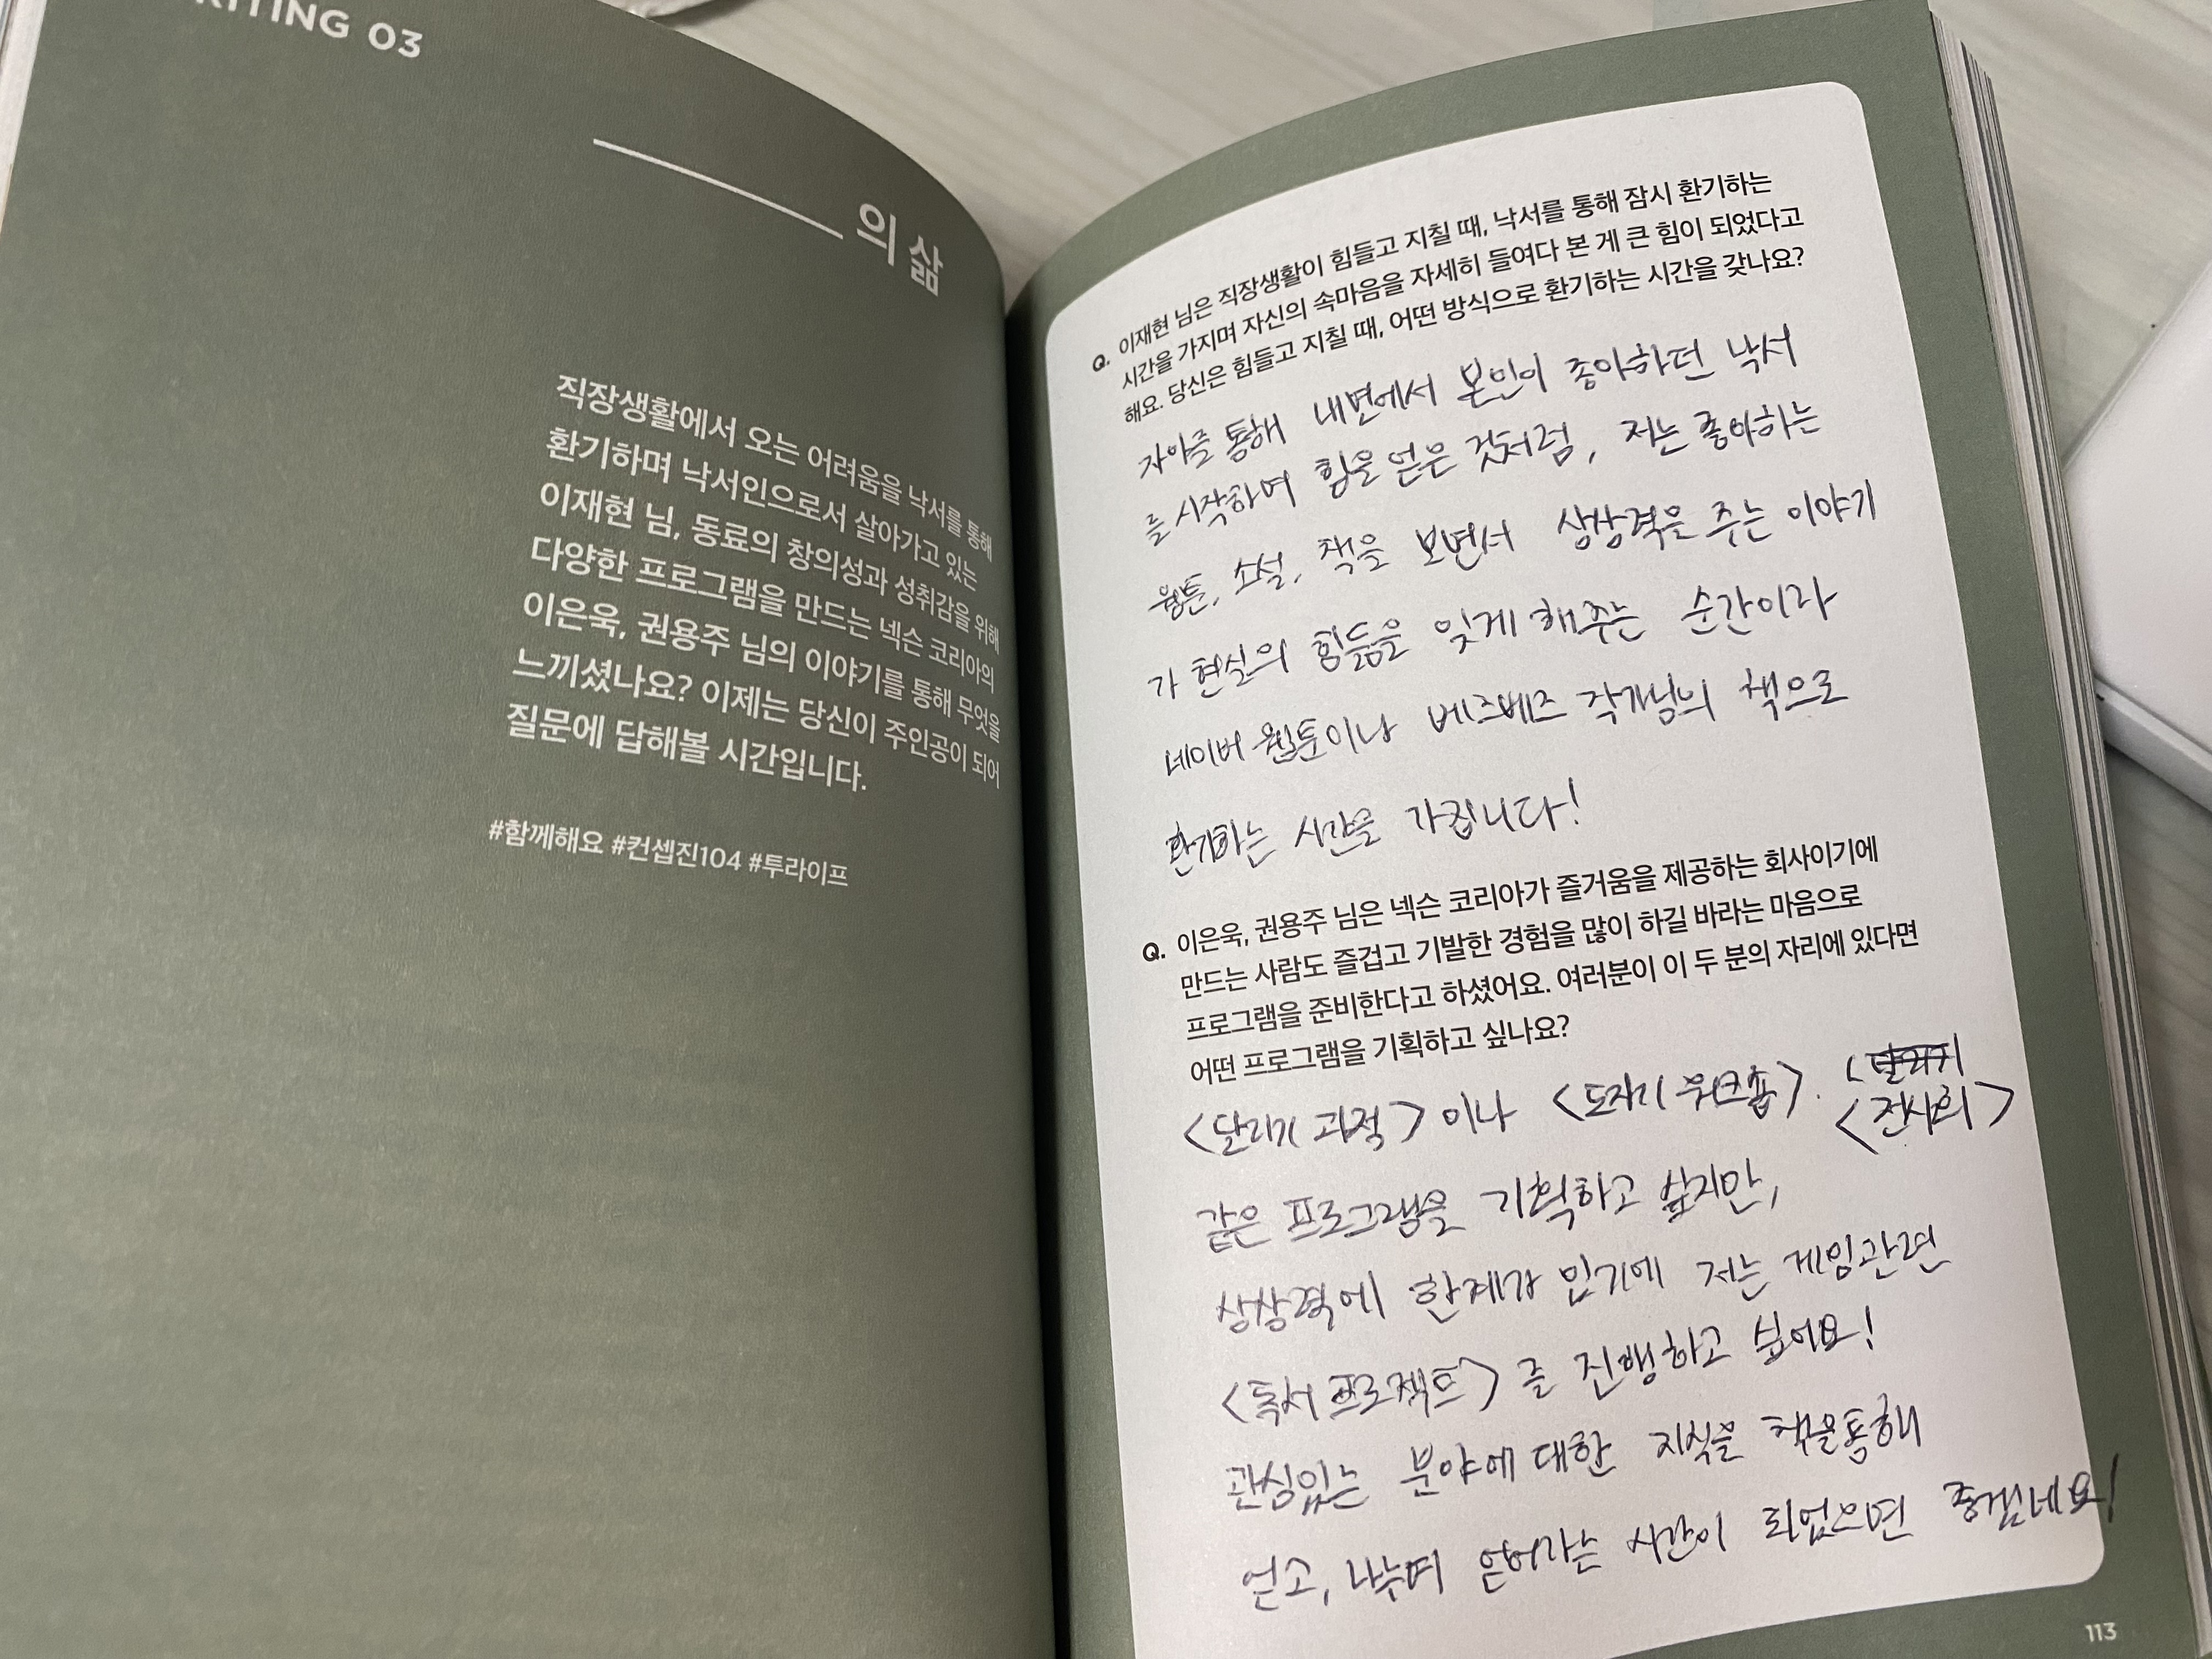 RITING 03
의 삶
직장생활에서 오는 어려움을 낙서를 통해
환기하며 낙서인으로서 살아가고 있는
이재현 님, 동료의 창의성과 성취감을 위해
다양한 프로그램을 만드는 넥슨 코리아의
이은욱, 권용주 님의 이야기를 통해 무엇을
느끼셨나요? 이제는 당신이 주인공이 되어
질문에 답해볼 시간입니다.
#함께해요 #컨셉진104 #투라이프
Q. 이재현 님은 직장생활이 힘들고 지칠 때, 낙서를 통해 잠시 환기하는
시간을 가지며 자신의 속마음을 자세히 들여다 본 게 큰 힘이 되었다고
해요. 당신은 힘들고 지칠 때, 어떤 방식으로 환기하는 시간을 갖나요?
자아를 통해 내면에서 본인이 좋아하던 낙서
를 시작하며 힘을 얻은 것처럼, 저는 좋아하는
웹툰, 소설, 책을 보면서 상상력을 주는 이야기
가 현실의 힘듦을 잊게 해주는 순간이라
네이버 웹툰이나 베르베르 작가님의 책으로
환기하는 시간을 가집니다!
Q. 이은욱, 권용주 님은 넥슨 코리아가 즐거움을 제공하는 회사이기에
만드는 사람도 즐겁고 기발한 경험을 많이 하길 바라는 마음으로
프로그램을 준비한다고 하셨어요. 여러분이 이 두 분의 자리에 있다면
어떤 프로그램을 기획하고 싶나요?
<달리기 과정> 이나 <도자기 워크숍>. <전시회>
같은 프로그램을 기획하고 싶지만,
상상력에 한계가 있기에 저는 게임관련
<독서 프로젝트> 를 진행하고 싶어요!
관심있는 분야에 대한 지식을 책을통해
얻고, 나누며 얻어가는 시간이 되었으면 좋겠네요!
113